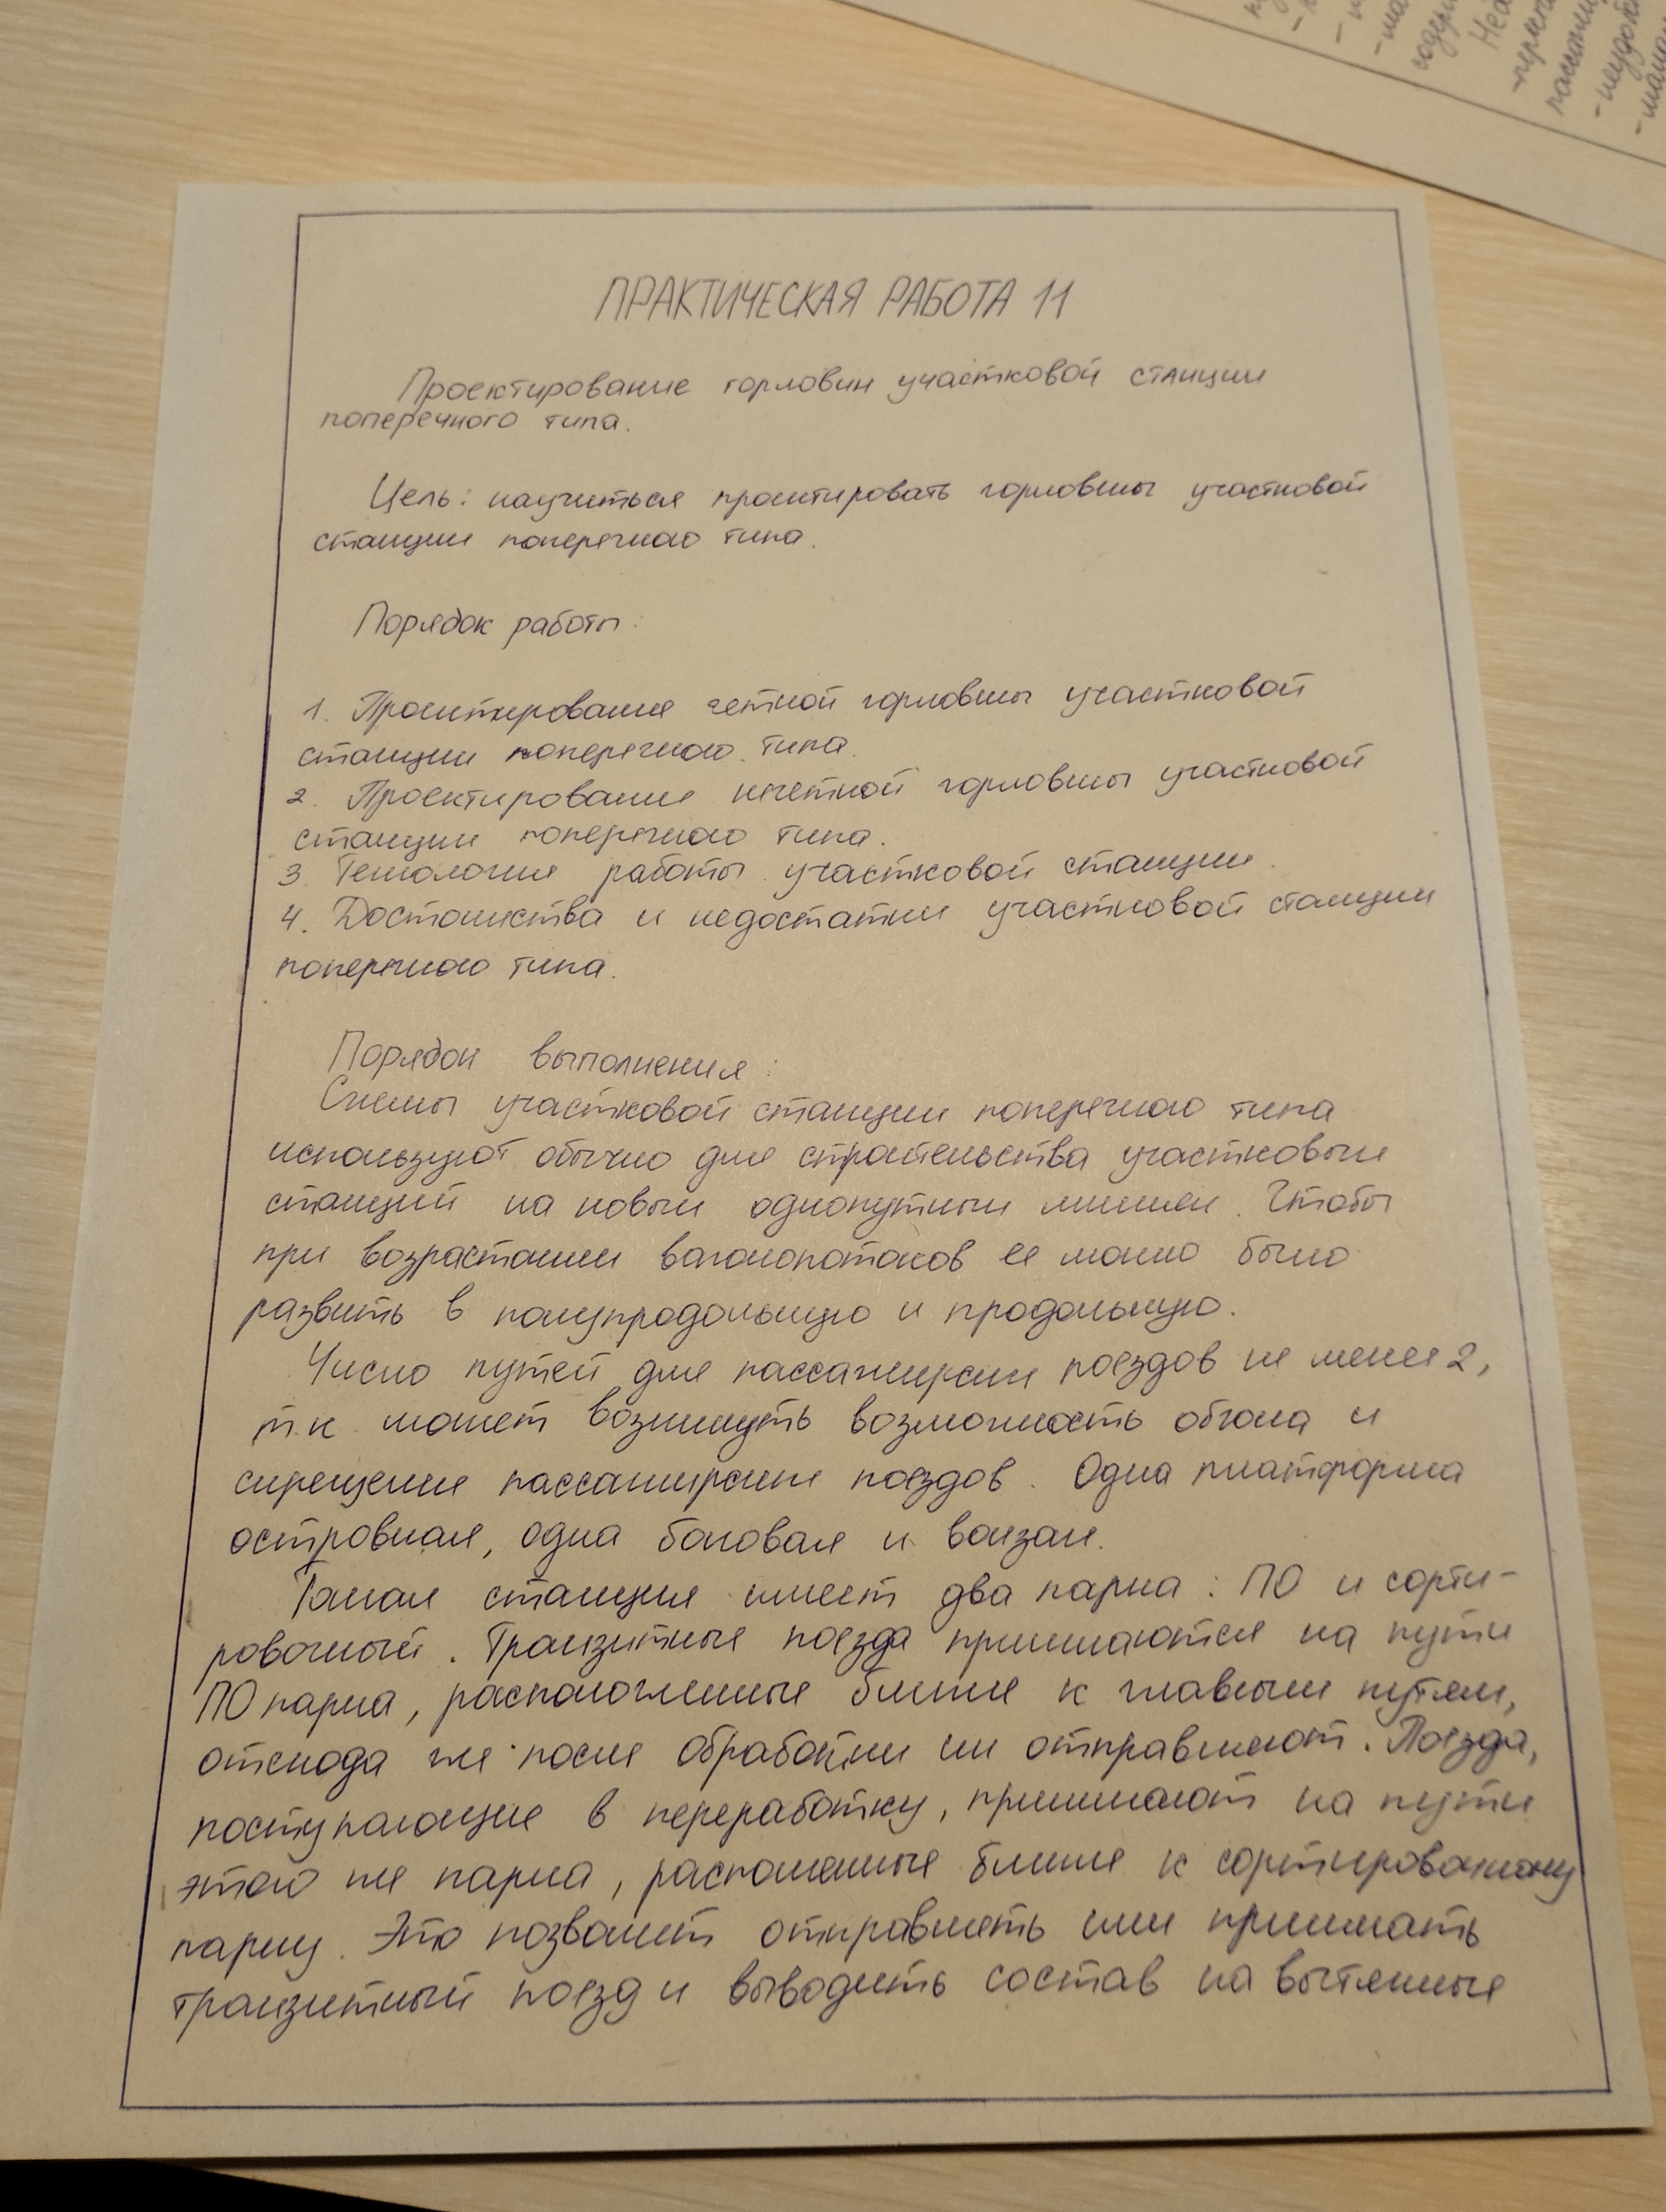 ПРАКТИЧЕСКАЯ РАБОТА 11
Проектирование горловин участковой станции
поперечного типа.
Цель: научиться проектировать горловины участковой
станции поперечного типа.
Порядок работы:
1. Проектирование четной горловины участковой
станции поперечного типа.
2. Проектирование нечетной горловины участковой
станции поперечного типа.
3. Технология работы участковой станции.
4. Достоинства и недостатки участковой станции
поперечного типа.
Порядок выполнения:
Схемы участковой станции поперечного типа
используют обычно для строительства участковых
станций на новых однопутных линиях. Чтобы
при возрастании вагонопотоков ее можно было
развить в полупродольную и продольную.
Число путей для пассажирских поездов не менее 2,
т.к может возникнуть возможность обгона и
скрещения пассажирских поездов. Одна платформа
островная, одна боковая и вокзал.
Такая станция имеет два парка: ПО и сорти-
ровочный. Транзитные поезда принимаются на пути
ПО парка, расположенные ближе к главным путям,
отсюда же после обработки их отправляют. Поезда,
поступающие в переработку, принимают на пути
этого же парка, расположенные ближе к сортировочному
парку. Это позволяет отправлять или принимать
транзитный поезд и выводить состав на вытяжные